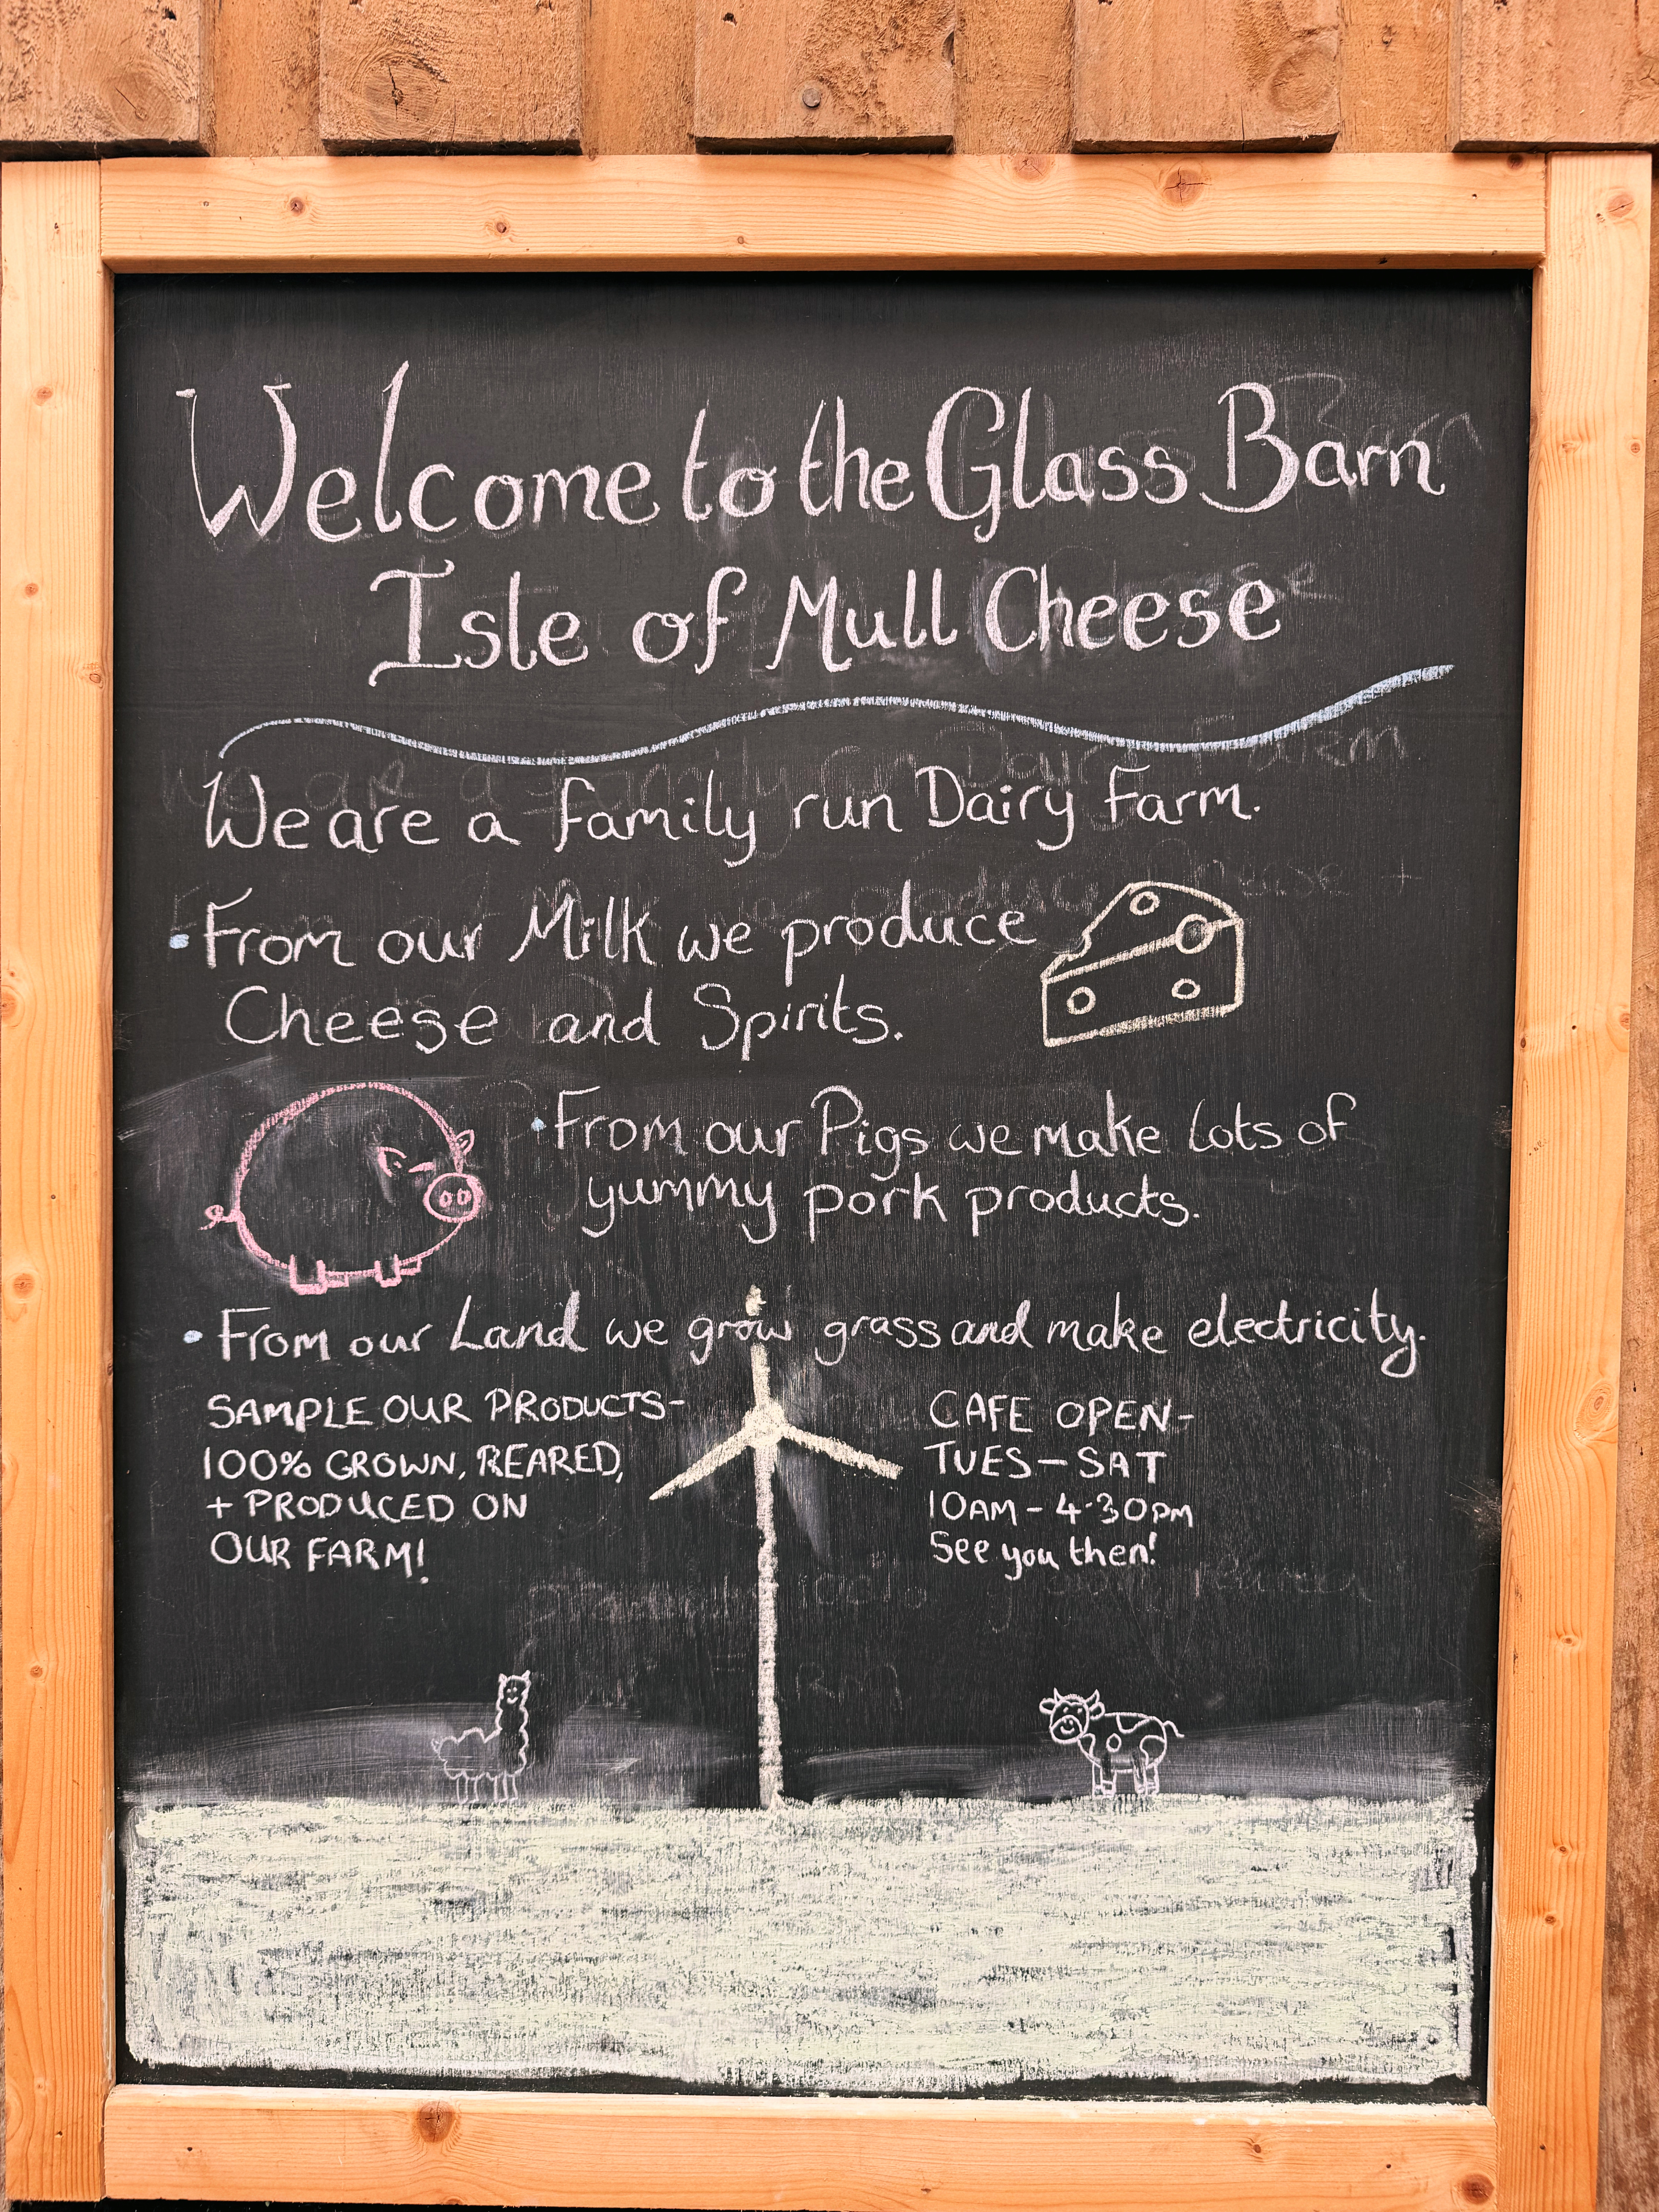 Welcome to the Glass Barn
Isle of Mull Cheese
We are a family run Dairy Farm.
• From our Milk we produce
Cheese and Spirits.
• From our Pigs we make lots of
yummy pork products.
• From our Land we grow grass and make electricity.
SAMPLE OUR PRODUCTS-
100% GROWN, REARED,
+ PRODUCED ON
OUR FARM!
CAFE OPEN-
TUES-SAT
10AM-4·30PM
See you then!